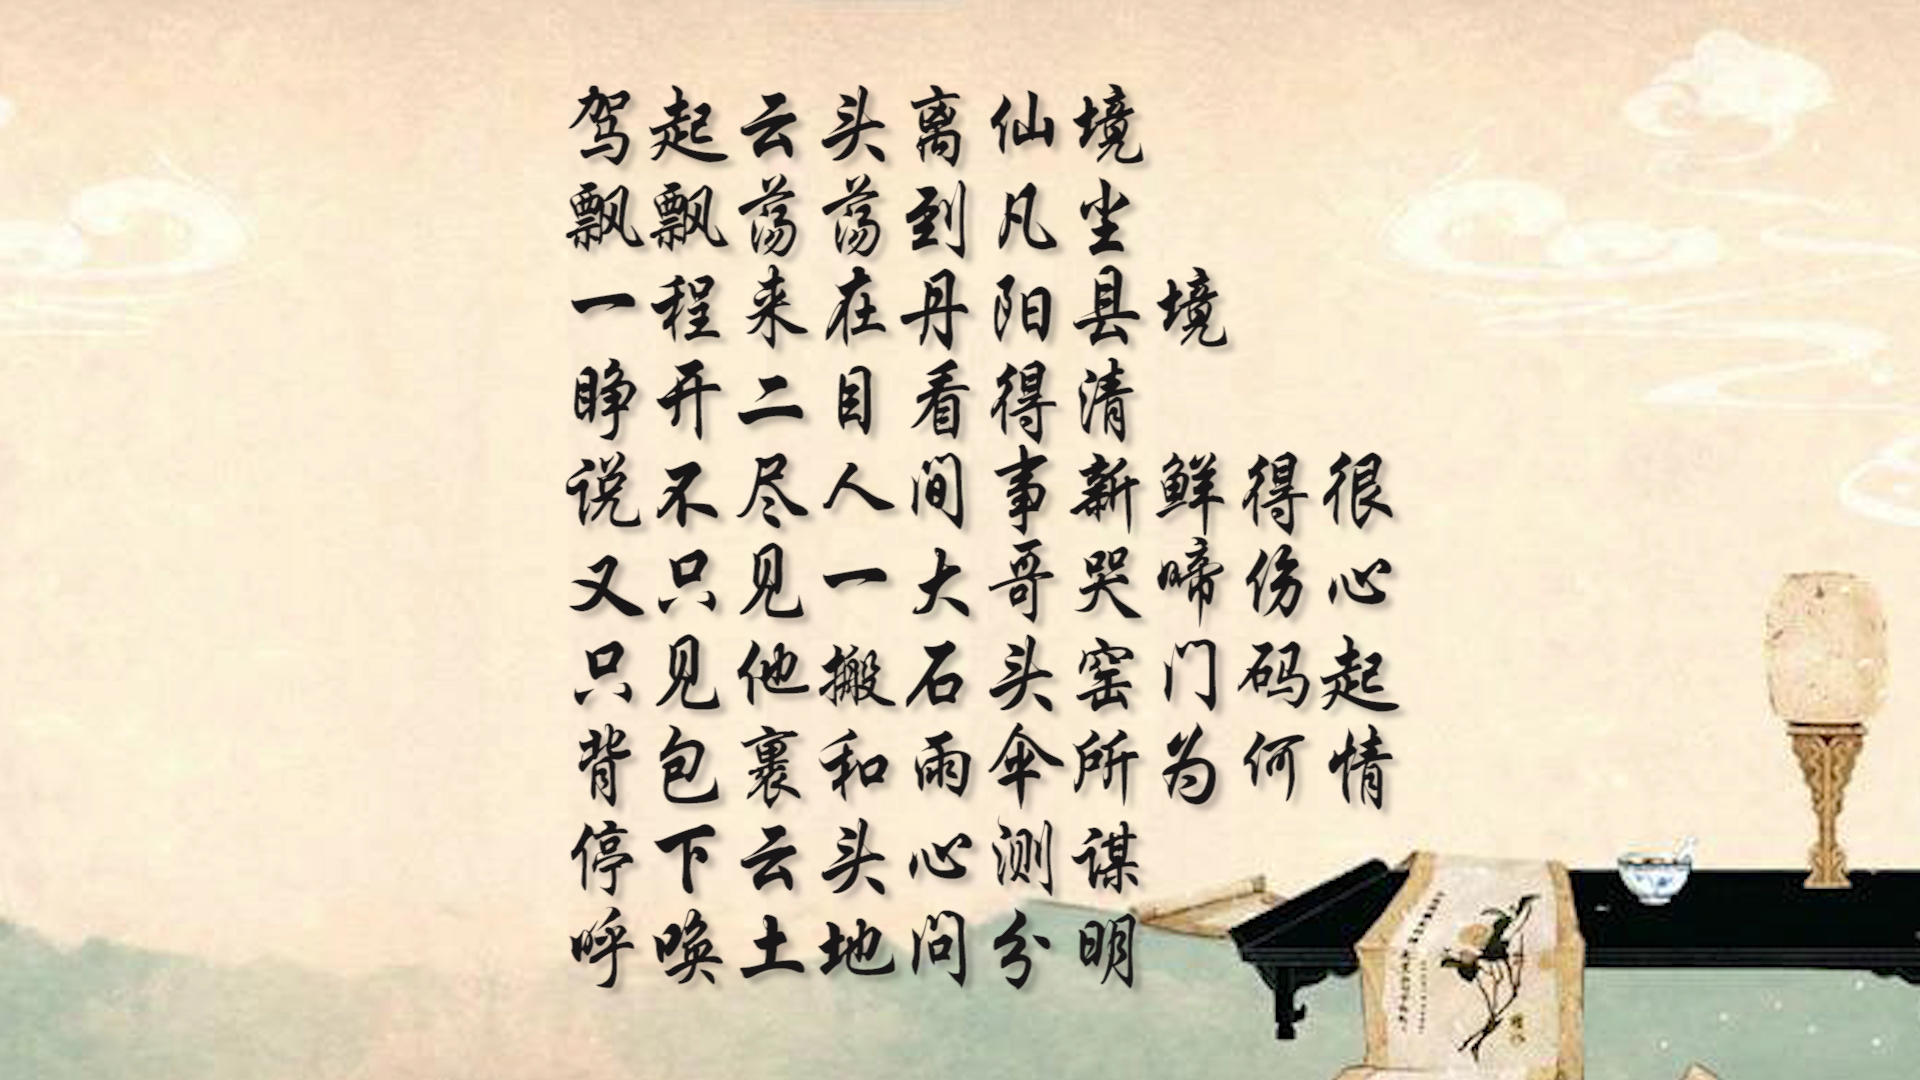 驾起云头离仙境
飘飘荡荡到凡尘
一程来在丹阳县境
睁开二目看得清
说不尽人间事新鲜得很
又只见一大哥哭啼伤心
只见他搬石头窑门码起
背包裹和雨伞所为何情
停下云头心测谋
呼唤土地问分明